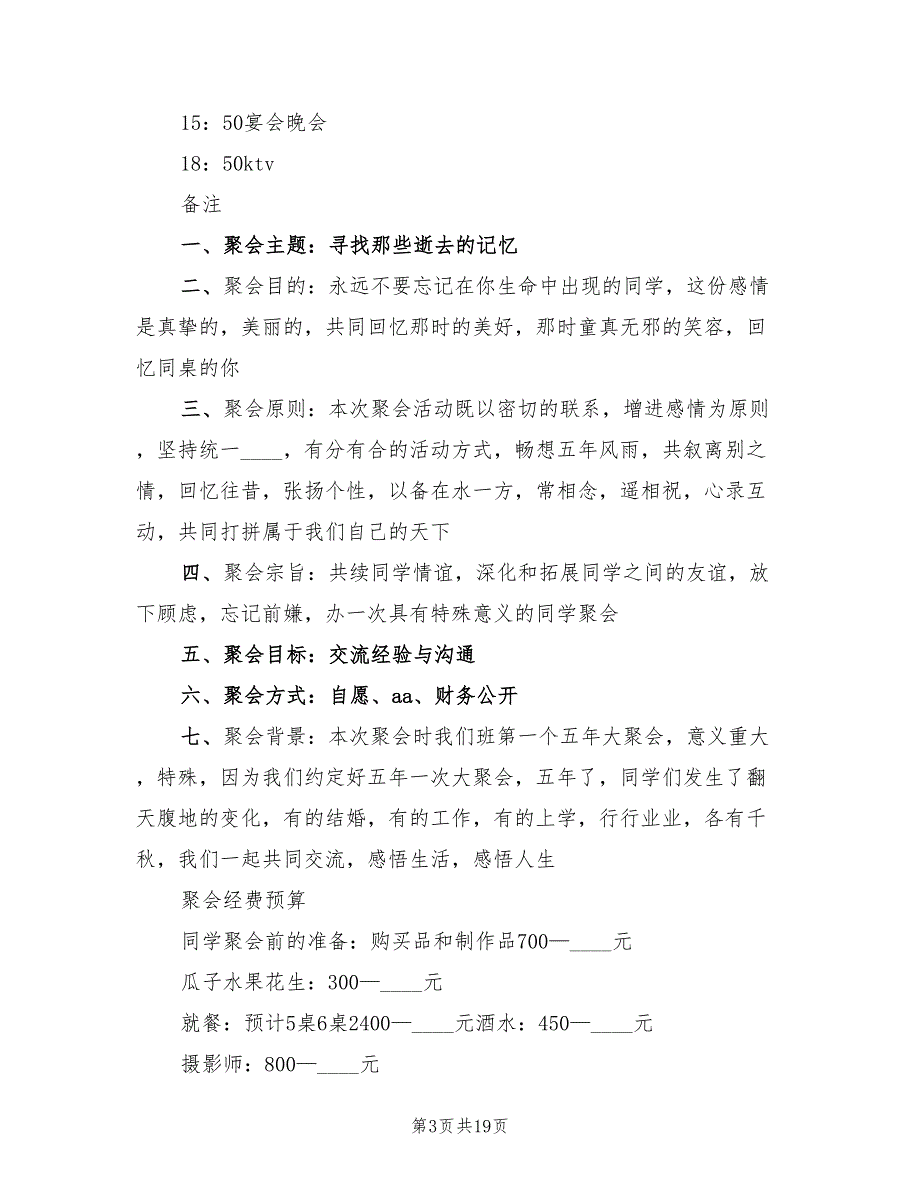 15：50宴会晚会
18：50ktv
备注
一、聚会主题：寻找那些逝去的记忆
二、聚会目的：永远不要忘记在你生命中出现的同学，这份感情
是真挚的，美丽的，共同回忆那时的美好，那时童真无邪的笑容，回
忆同桌的你
三、聚会原则：本次聚会活动既以密切的联系，增进感情为原则
，坚持统一____，有分有合的活动方式，畅想五年风雨，共叙离别之
情，回忆往昔，张扬个性，以备在水一方，常相念，遥相祝，心录互
动，共同打拼属于我们自己的天下
四、聚会宗旨：共续同学情谊，深化和拓展同学之间的友谊，放
下顾虑，忘记前嫌，办一次具有特殊意义的同学聚会
五、聚会目标：交流经验与沟通
六、聚会方式：自愿、aa、财务公开
七、聚会背景：本次聚会时我们班第一个五年大聚会，意义重大
，特殊，因为我们约定好五年一次大聚会，五年了，同学们发生了翻
天腹地的变化，有的结婚，有的工作，有的上学，行行业业，各有千
秋，我们一起共同交流，感悟生活，感悟人生
聚会经费预算
同学聚会前的准备：购买品和制作品700—____元
瓜子水果花生：300—____元
就餐：预计5桌6桌2400—____元酒水：450—____元
摄影师：800—____元
第3页共19页